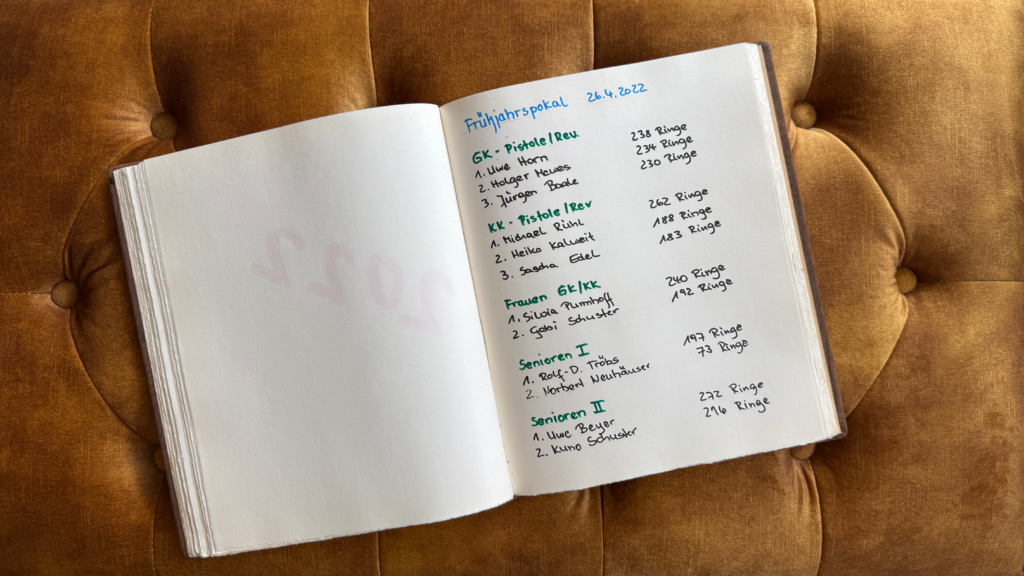 Frühjahrspokal 26.4.2022
GK - Pistole/Rev.
1. Uwe Horn 238 Ringe
2. Holger Mewes 234 Ringe
3. Jürgen 230 Ringe
KK - Pistole/Rev
1. Michael Rühl 262 Ringe
2. Heiko Kalweit 188 Ringe
3. Sascha Edel 183 Ringe
Frauen GK/KK
1. Silvia Plumhoff 240 Ringe
2. Gabi Schuster 192 Ringe
Senioren I
1. Rolf-D. Tröbs 197 Ringe
2. Herbert Neuhäuser 73 Ringe
Senioren II
1. Uwe Beyer 272 Ringe
2. Kuno Schuster Ringe